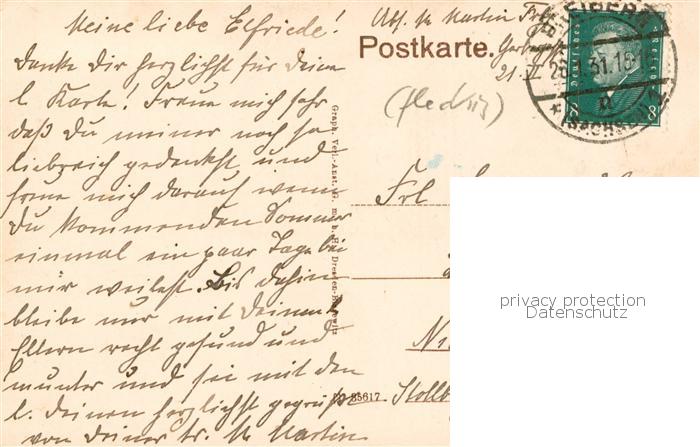 Meine liebe Elfriede!
Danke dir herzlichst für deine
l. Karte! Freue mich sehr
daß du meiner noch so
liebreich gedenkst und
freue mich darauf wenn
du kommenden Sommer
einmal ein paar Tage bei
mir weilest. Bis dahin
bleibe nur mit deinen
Eltern recht gesund und
munter und sei mit den
l. deinen herzlichst gegrüßt
von deiner tr. M. Martin
Abs. M. Martin
Postkarte.
21.
(fleckig)
FREIBERG
31.
(SACHSEN)
Deutsches Reich
8 8
Frl
Stollb
Graph. Verl.-Anst. G. m. b. H. Dresden
35617
privacy protection
Datenschutz